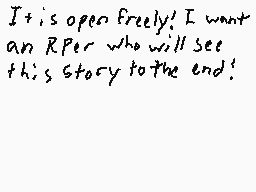 It is open freely! I want
an RPer who will see
this story to the end!